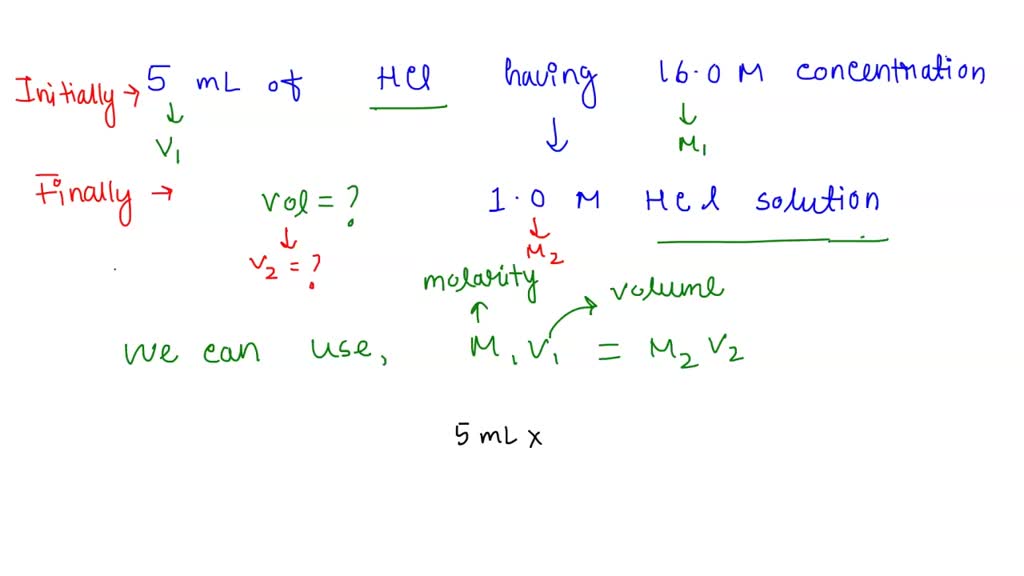 Initially → 5 mL of HCl having 16.0 M concentration
↓ ↓ ↓
V₁ M₁
Finally → vol = ? 1.0 M HCl solution
↓ ↓
V₂ = ? M₂
molarity volume
↑
We can use, M₁V₁ = M₂V₂
5 mL x